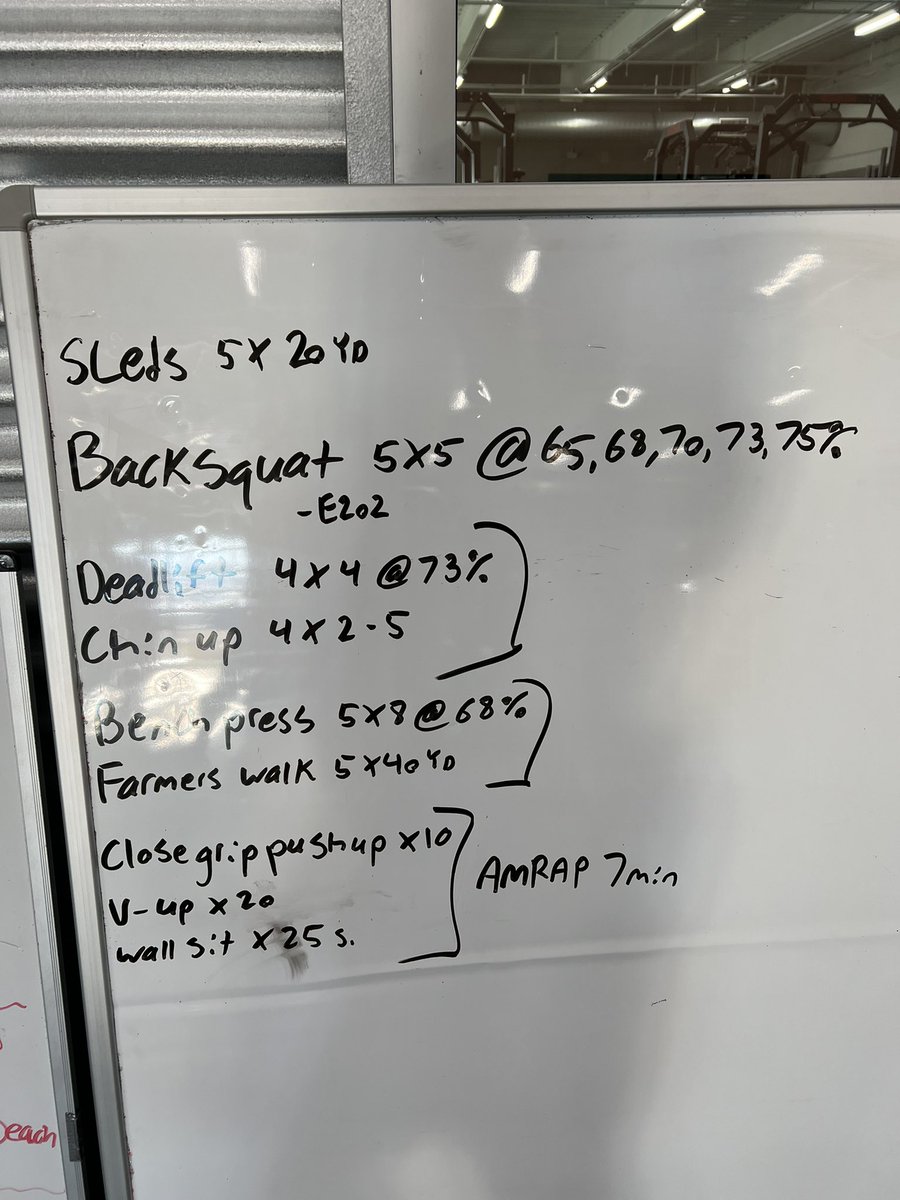 Sleds 5x20YD
Backsquat 5x5 @65,68,70,73,75%
-E2o2
Deadlift 4x4@73%
Chin up 4x2-5
Bench press 5x8@68%
Farmers walk 5x40YD
Close grip push up x10
V-up x20
wall sit x 25 s.
AMRAP 7min